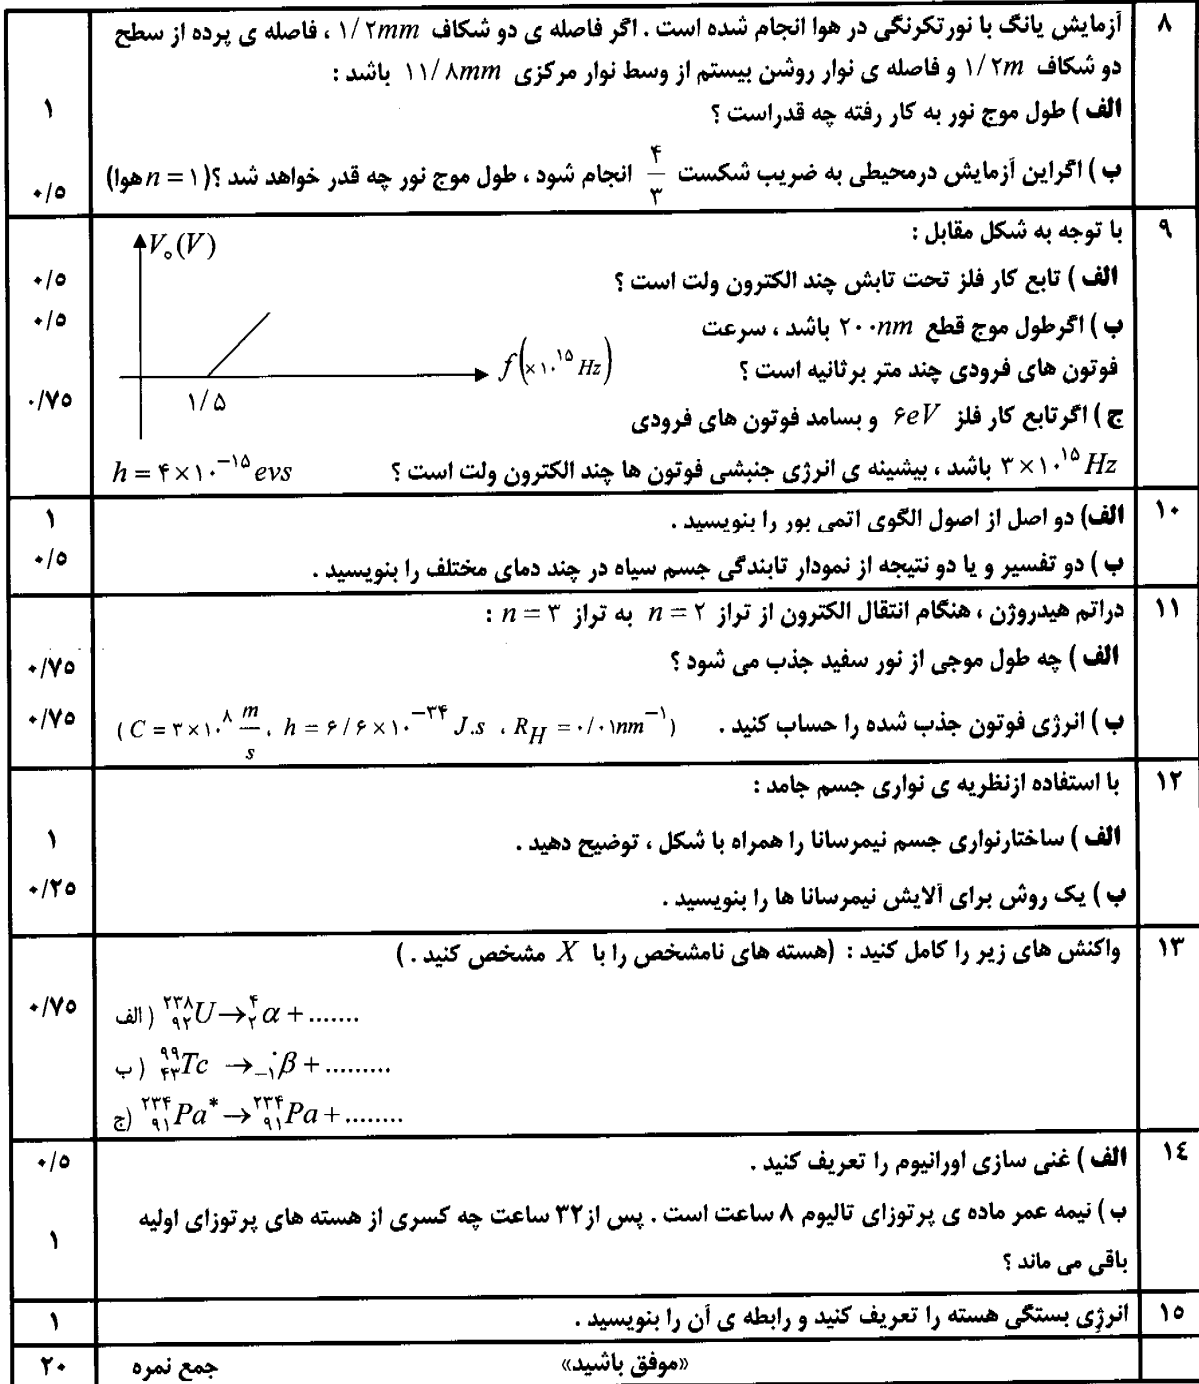 ۸ آزمایش یانگ با نورتکرنگی در هوا انجام شده است . اگر فاصله ی دو شکاف ۱/۲mm ، فاصله ی پرده از سطح
دو شکاف ۱/۲m و فاصله ی نوار روشن بیستم از وسط نوار مرکزی ۱۱/۸mm باشد :
الف ) طول موج نور به کار رفته چه قدراست ؟ ۱
ب ) اگراین آزمایش درمحیطی به ضریب شکست ۴/۳ انجام شود ، طول موج نور چه قدر خواهد شد ؟( n = ۱ هوا) ۰/۵
۹ با توجه به شکل مقابل :
الف ) تابع کار فلز تحت تابش چند الکترون ولت است ؟ ۰/۵
ب ) اگرطول موج قطع ۲۰۰nm باشد ، سرعت ۰/۵
فوتون های فرودی چند متر برثانیه است ؟
ج ) اگرتابع کار فلز ۶eV و بسامد فوتون های فرودی ۰/۷۵
۳×۱۰^۱۵ Hz باشد ، بیشینه ی انرژی جنبشی فوتون ها چند الکترون ولت است ؟ h = ۴×۱۰^−۱۵ evs
V₀(V)
f(×۱۰^۱۵ Hz)
۱/۵
۱۰ الف) دو اصل از اصول الگوی اتمی بور را بنویسید . ۱
ب ) دو تفسیر و یا دو نتیجه از نمودار تابندگی جسم سیاه در چند دمای مختلف را بنویسید . ۰/۵
۱۱ دراتم هیدروژن ، هنگام انتقال الکترون از تراز n = ۲ به تراز n = ۳ :
الف ) چه طول موجی از نور سفید جذب می شود ؟ ۰/۷۵
ب ) انرژی فوتون جذب شده را حساب کنید . ( C = ۳×۱۰^۸ m/s ، h = ۶/۶×۱۰^−۳۴ J.s ، R_H = ۰/۰۱nm^−۱ ) ۰/۷۵
۱۲ با استفاده ازنظریه ی نواری جسم جامد :
الف ) ساختارنواری جسم نیمرسانا را همراه با شکل ، توضیح دهید . ۱
ب ) یک روش برای آلایش نیمرسانا ها را بنویسید . ۰/۲۵
۱۳ واکنش های زیر را کامل کنید : (هسته های نامشخص را با X مشخص کنید . )
الف ) ²³⁸₉₂U → ⁴₂α + ....... ۰/۷۵
ب ) ⁹⁹₄₃Tc → ⁰₋₁β + .........
ج) ²³⁴₉₁Pa* → ²³⁴₉₁Pa + ........
۱٤ الف ) غنی سازی اورانیوم را تعریف کنید . ۰/۵
ب ) نیمه عمر ماده ی پرتوزای تالیوم ۸ ساعت است . پس از۳۲ ساعت چه کسری از هسته های پرتوزای اولیه ۱
باقی می ماند ؟
۱۵ انرژیِ بستگی هسته را تعریف کنید و رابطه ی آن را بنویسید . ۱
«موفق باشید» جمع نمره ۲۰